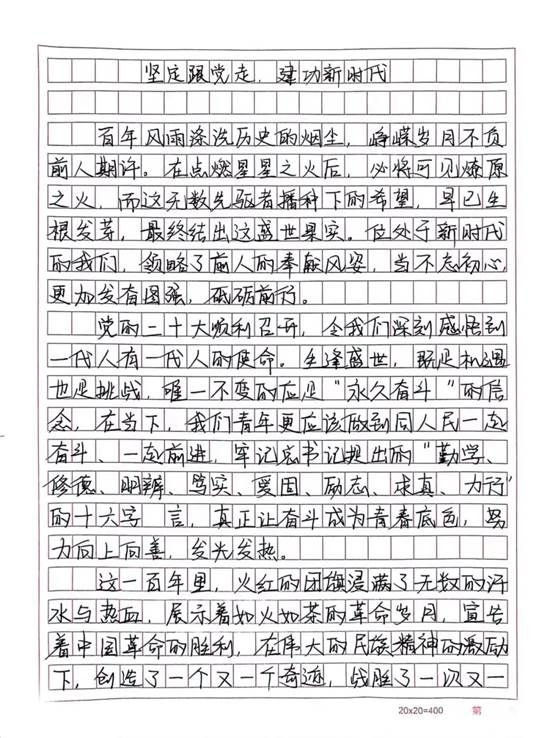 坚定跟党走，建功新时代
百年风雨涤洗历史的烟尘，峥嵘岁月不负
前人期许。在点燃星星之火后，必将可见燎原
之火，而这无数先驱者播种下的希望，早已生
根发芽，最终结出这盛世果实。位处于新时代
的我们，领略了前人的奉献风姿，当不忘初心，
更加发奋图强，砥砺前行。
党的二十大顺利召开，令我们深刻感悟到
一代人有一代人的使命。生逢盛世，既是机遇
也是挑战，唯一不变的应是“永久奋斗”的信
念，在当下，我们青年更应该做到同人民一起
奋斗、一起前进，牢记总书记提出的“勤学、
修德、明辨、笃实、爱国、励志、求真、力行”
的十六字 言，真正让奋斗成为青春底色，努
力向上向善，发光发热。
这一百年里，火红的团旗浸满了无数的汗
水与热血，展示着如火如荼的革命岁月，宣告
着中国革命的胜利，在伟大的民族精神的激励
下，创造了一个又一个奇迹，战胜了一次又一
20x20=400 第